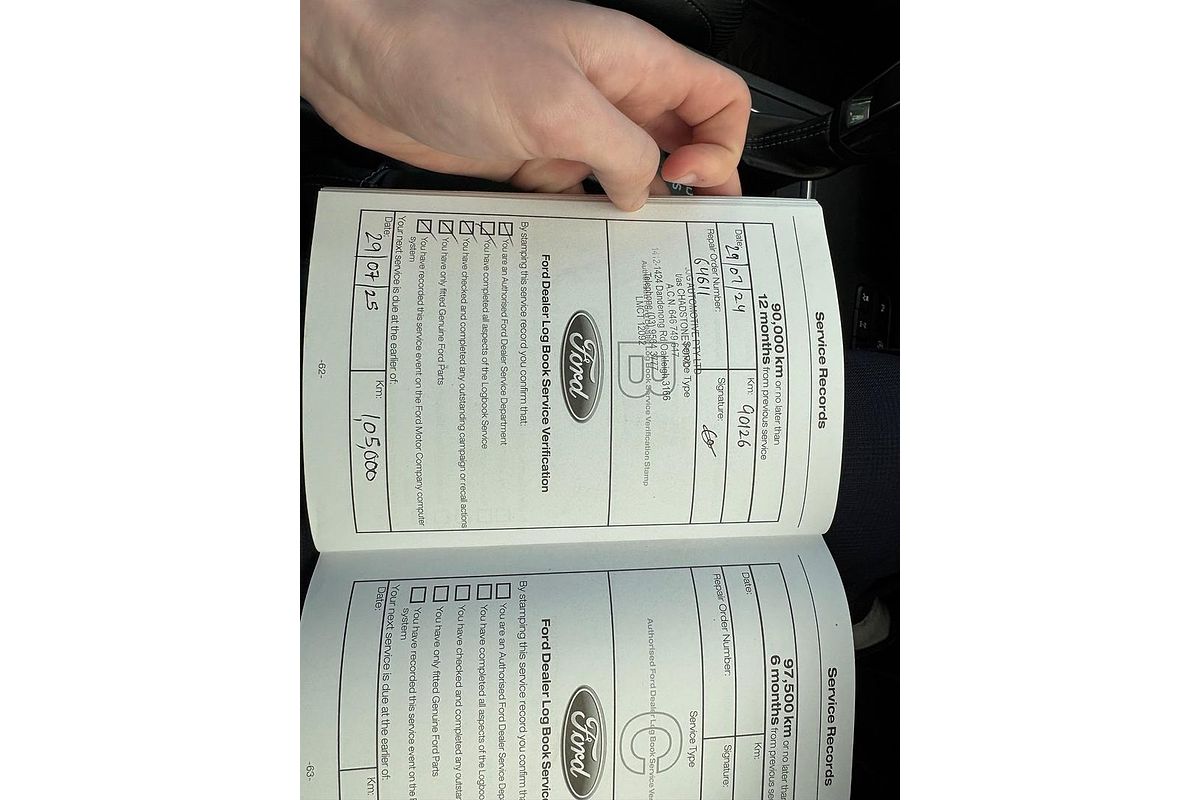 Service Records
90,000 km or no later than
12 months from previous service
Date: 29/07/24
Km: 90126
Repair Order Number:
64611
Signature:
Service Type
B
t/as CHADSTONE
A.C.N: 646 749 617
Dandenong Rd, Oakleigh 3166
Telephone: (03) 9564
LMCT 12092
Authorised Ford Dealer Log Book Service Verification Stamp
Ford
Ford Dealer Log Book Service Verification
By stamping this service record you confirm that:
You are an Authorised Ford Dealer Service Department
You have completed all aspects of the Logbook Service
You have checked and completed any outstanding campaign or recall actions
You have only fitted Genuine Ford Parts
You have recorded this service event on the Ford Motor Company computer
system
Your next service is due at the earlier of:
Date: 29/07/25
Km: 1,05,000
-62-
Service Records
97,500 km or no later than
6 months from previous
Date:
Km:
Repair Order Number:
Signature:
Service Type
C
Authorised Ford Dealer Log Book Service
Ford
Ford Dealer Log Book
By stamping this service record you confirm
You are an Authorised Ford Dealer Service
You have completed all aspects of the
You have checked and completed any
You have only fitted Genuine Ford Parts
You have recorded this service event on the
system
Your next service is due at the earlier of:
Date:
Km:
-63-